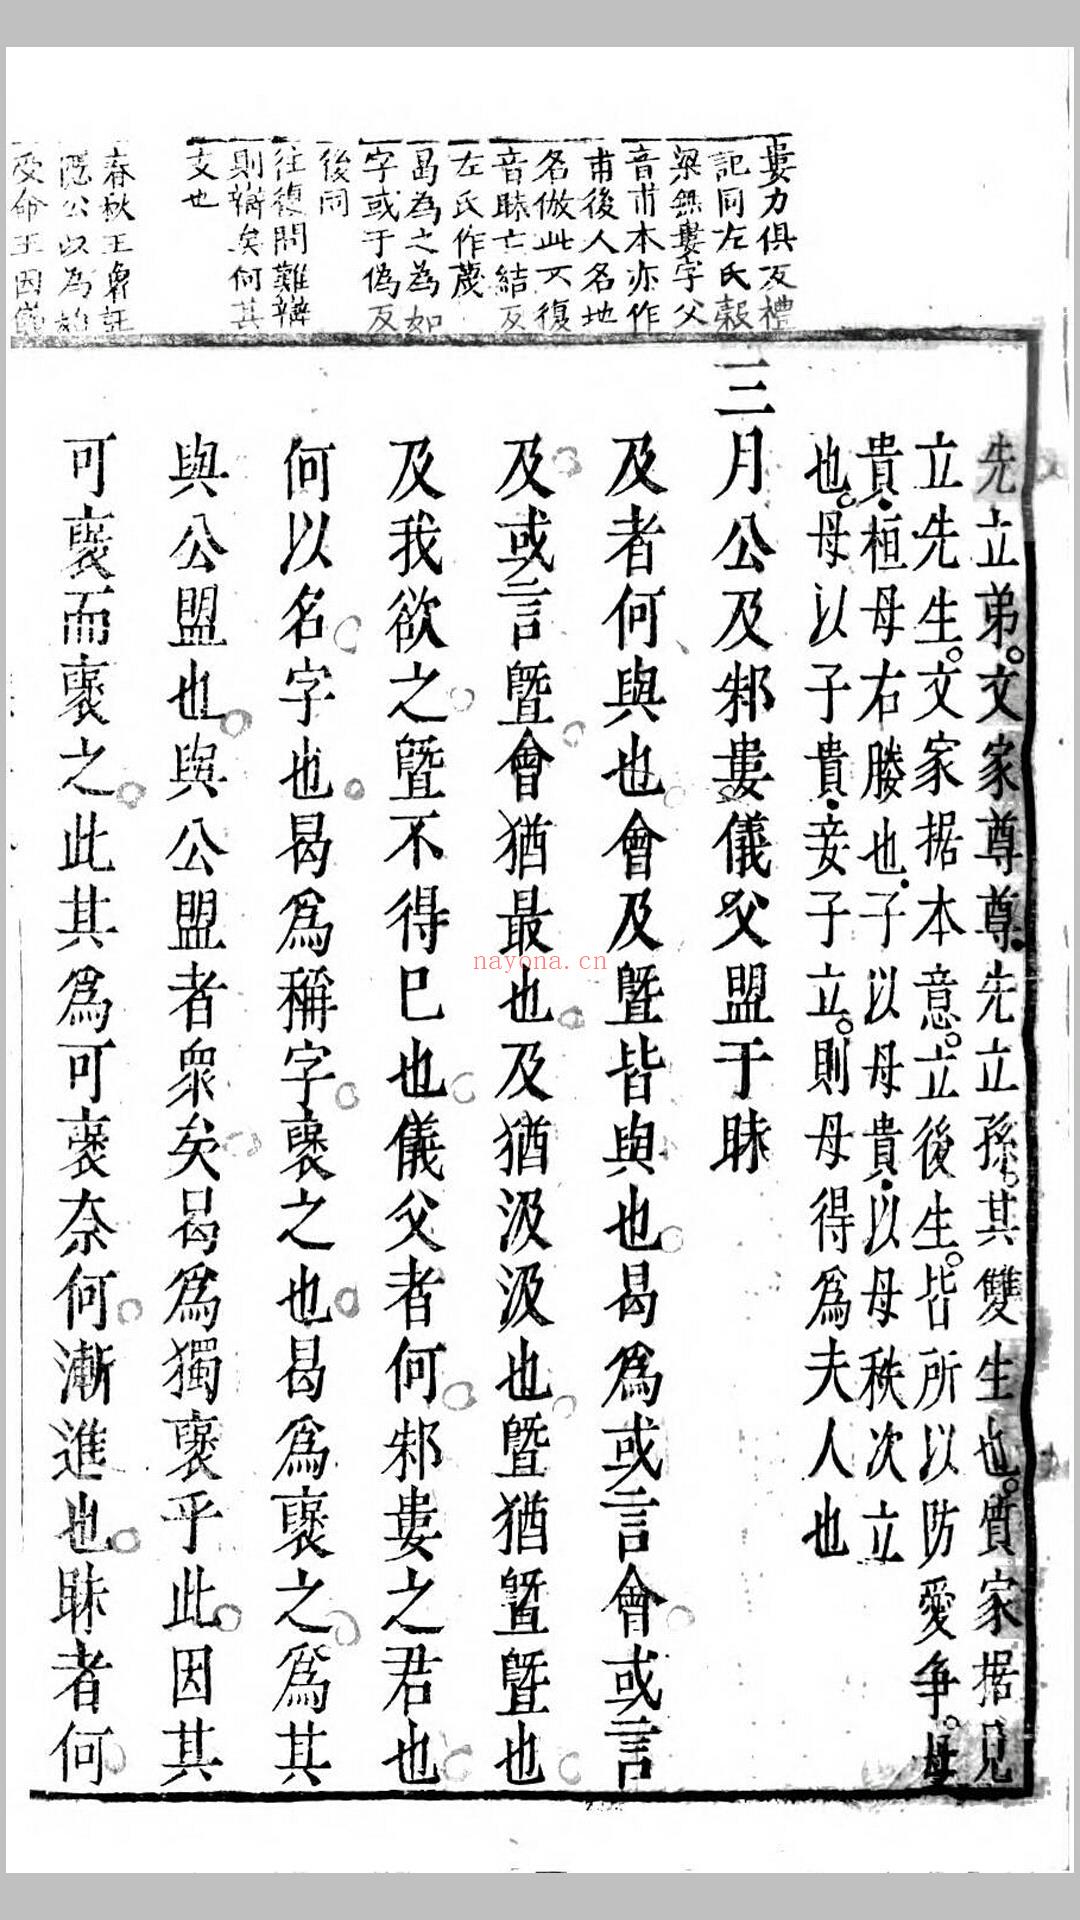 婁力俱反禮
記同左氏穀
梁無婁字父
音甫本亦作
甫後人名地
名倣此不復
音眛亡結反
左氏作蔑
曷為之為如
字或于偽反
後同
往復問難辯
則辯矣何其
支也
春秋王魯託
隱公以為始
受命王因儀
先立弟文家尊尊先立孫其雙生也質家据見
立先生文家据本意立後生皆所以防愛爭母
貴桓母右媵也子以母貴以母秩次立
也母以子貴妾子立則母得爲夫人也
三月公及邾婁儀父盟于眛
及者何與也會及曁皆與也曷爲或言會或言
及或言曁會猶最也及猶汲汲也曁猶曁曁也
及我欲之曁不得已也儀父者何邾婁之君也
何以名字也曷爲稱字褒之也曷爲褒之爲其
與公盟也與公盟者衆矣曷爲獨褒乎此因其
可褒而褒之此其爲可褒奈何漸進也眛者何
nayona.cn